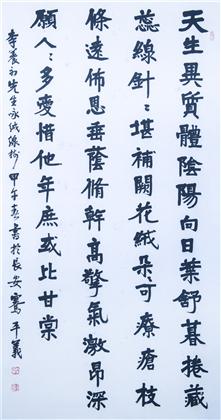 天生異質體陰陽向日葉舒暮捲藏
蕊線針〻堪補闕花絨朵〻可療瘡枝
條遠佈恩垂蔭脩幹高擎氣激昂深
願人〻多愛惜他年庶或比甘棠
李養初先生詠絨線樹 甲午 書於長安 平義